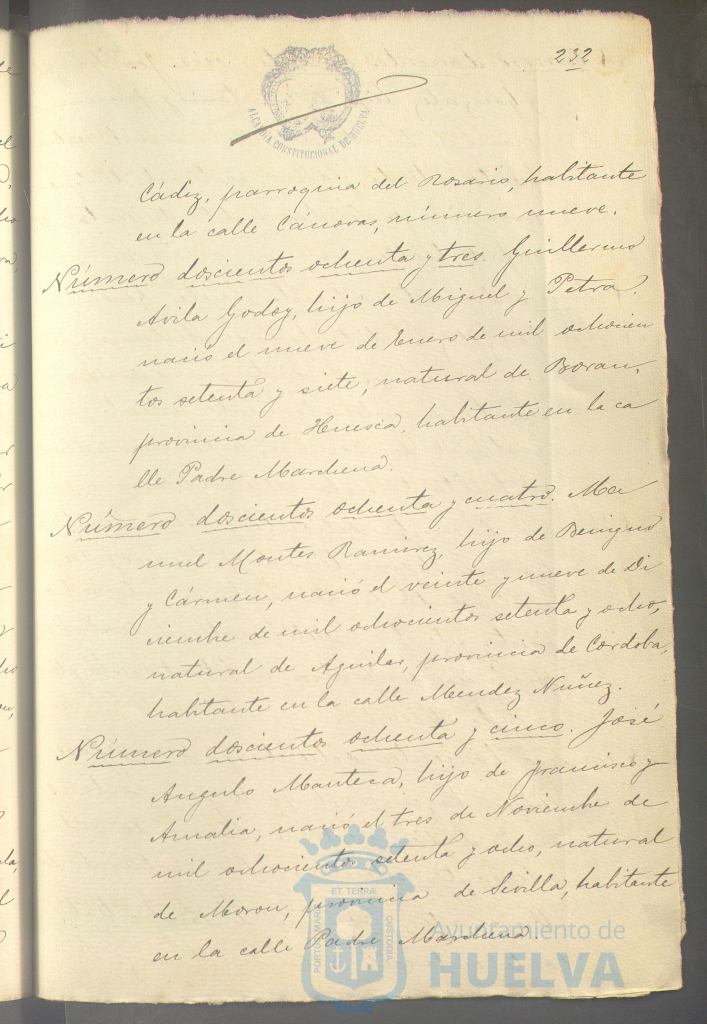 232
ALCALDIA CONSTITUCIONAL DE HUELVA
Cádiz, parroquia del Rosario, habitante
en la calle Cánovas, número nueve.
Número doscientos ochenta y tres. Guillermo
Avila Godoy, hijo de Miguel y Petra.
nació el nueve de Enero de mil ochocien
tos setenta y siete, natural de
provincia de Huesca, habitante en la ca
lle Padre Marchena.
Número doscientos ochenta y cuatro. Ma
nuel Montes Ramirez, hijo de Benigno
y Cármen, nació el veinte y nueve de Di
ciembre de mil ochocientos setenta y ocho,
natural de Aguilar, provincia de Córdoba,
habitante en la calle Mendez Nuñez.
Número doscientos ochenta y cinco. José
Angulo Manteca, hijo de Francisco y
Amalia, nació el tres de Noviembre de
mil ochocientos setenta y ocho, natural
de Moron, provincia de Sevilla, habitante
en la calle Padre Marchena.
PORTUS MARIS ET TERRÆ CUSTODIA
Ayuntamiento de
HUELVA